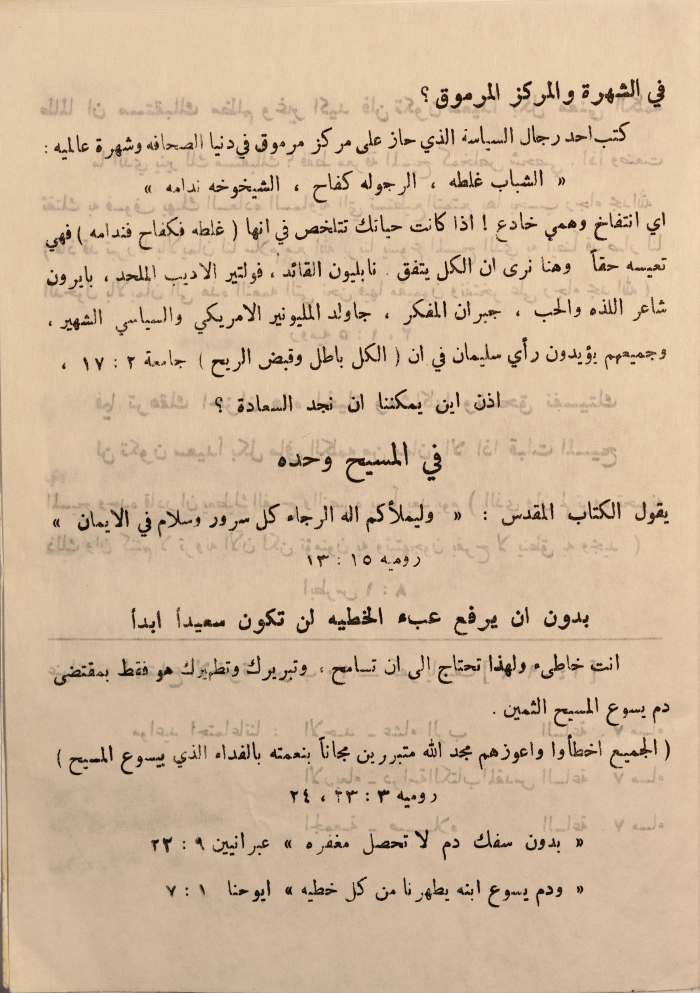 في الشهرة والمركز المرموق ؟
كتب احد رجال السياسة الذي حاز على مركز مرموق في دنيا الصحافه وشهرة عالميه :
« الشباب غلطه ، الرجوله كفاح ، الشيخوخه ندامه »
اي انتفاخ وهمي خادع ! اذا كانت حياتك تتلخص في انها ( غلطه فكفاح فندامه ) فهي
تعيسه حقاً وهنا نرى ان الكل يتفق . نابليون القائد ، فولتير الاديب الملحد ، بايرون
شاعر اللذه والحب ، جبران المفكر ، جاولد المليونير الامريكي والسياسي الشهير ،
وجميعهم يؤيدون رأي سليمان في ان ( الكل باطل وقبض الريح ) جامعة ٢ : ١٧ ،
اذن اين يمكننا ان نجد السعادة ؟
في المسيح وحده
يقول الكتاب المقدس : « وليملأكم اله الرجاء كل سرور وسلام في الايمان »
روميه ١٥ : ١٣
بدون ان يرفع عبء الخطيه لن تكون سعيداً ابداً
انت خاطىء ولهذا تحتاج الى ان تسامح ، وتبريرك وتطهيرك هو فقط بمقتضى
دم يسوع المسيح الثمين .
( الجميع اخطأوا واعوزهم مجد الله متبررين مجاناً بنعمته بالفداء الذي بيسوع المسيح )
روميه ٣ : ٢٣ ، ٢٤
« بدون سفك دم لا تحصل مغفره » عبرانيين ٩ : ٢٢
« ودم يسوع ابنه يطهرنا من كل خطيه » ايوحنا ١ : ٧